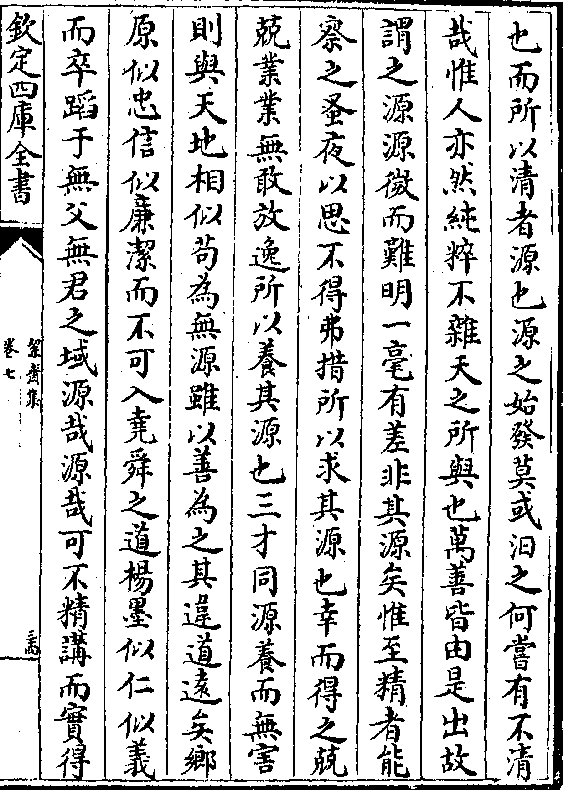 也而所以清者源也源之始發莫或汩之何嘗有不清
哉惟人亦然純粹不雜天之所與也萬善皆由是出故
謂之源源微而難明一毫有差非其源矣惟至精者能
察之蚤夜以思不得弗措所以求其源也幸而得之兢
兢業業無敢放逸所以養其源也三才同源養而無害
則與天地相似苟為無源雖以善為之其違道遠矣鄉
原似忠信似廉潔而不可入堯舜之道楊墨似仁似義
而卒蹈于無父無君之域源哉源哉可不精講而實得
欽定四庫全書
絜齋集
卷七